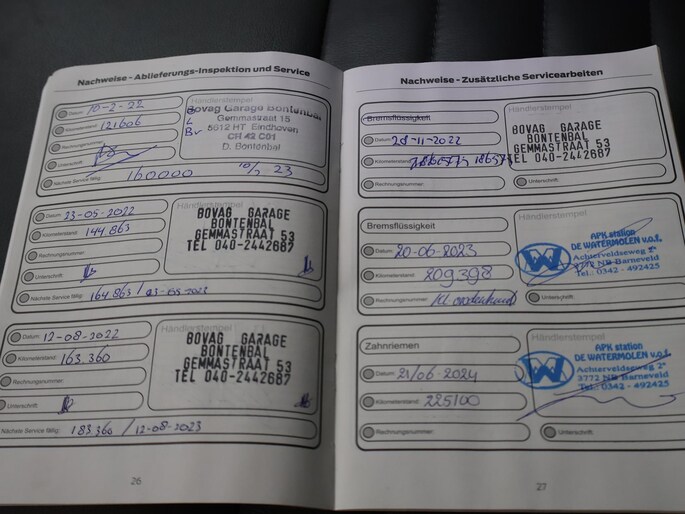 Nachweise - Ablieferungs-Inspektion und Service
Datum: 10-2-22
Kilometerstand: 121606
Rechnungsnummer:
Unterschrift:
Nächste Service fällig: 160000 10/2 23
Händlerstempel
Bovag Garage Bontenbal
Gemmastraat 15
5612 HT Eindhoven
D. Bontenbal
Datum: 23-05-2022
Kilometerstand: 144.863
Rechnungsnummer:
Unterschrift:
Nächste Service fällig: 164.863 / 23-05-2023
Händlerstempel
BOVAG GARAGE
BONTENBAL
GEMMASTRAAT 53
TEL 040-2442687
Datum: 12-08-2022
Kilometerstand: 163.360
Rechnungsnummer:
Unterschrift:
Nächste Service fällig: 183.360 / 12-08-2023
Händlerstempel
BOVAG GARAGE
BONTENBAL
GEMMASTRAAT 53
TEL 040-2442687
26
Nachweise - Zusätzliche Servicearbeiten
Bremsflüssigkeit
Datum: 28-11-2022
Kilometerstand: 186573
Rechnungsnummer:
Unterschrift:
Händlerstempel
BOVAG GARAGE
BONTENBAL
GEMMASTRAAT 53
TEL 040-2442687
Bremsflüssigkeit
Datum: 20-06-2023
Kilometerstand: 209398
Rechnungsnummer:
Unterschrift:
Händlerstempel
W
APK station
DE WATERMOLEN v.o.f.
Achterveldseweg 2a
3772 NB Barneveld
Tel.: 0342 - 492425
Zahnriemen
Datum: 21/06 2024
Kilometerstand: 225100
Rechnungsnummer:
Unterschrift:
Händlerstempel
W
APK station
DE WATERMOLEN v.o.f.
Achterveldseweg 2a
3772 NB Barneveld
Tel.: 0342 - 492425
27